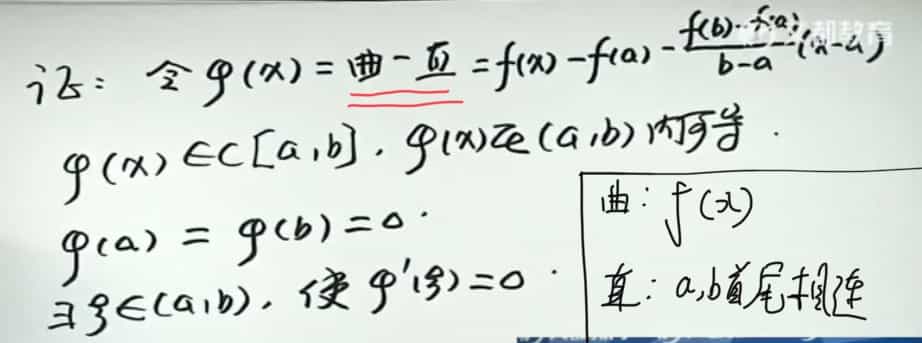 证: 令φ(x)=曲-直=f(x)-f(a)-\frac{f(b)-f(a)}{b-a}(x-a)
φ(x)∈C[a,b],φ(x)在(a,b)内可导.
φ(a)=φ(b)=0.
∃ξ∈(a,b),使φ'(ξ)=0.
曲: f(x)
直: a,b首尾相连
教育